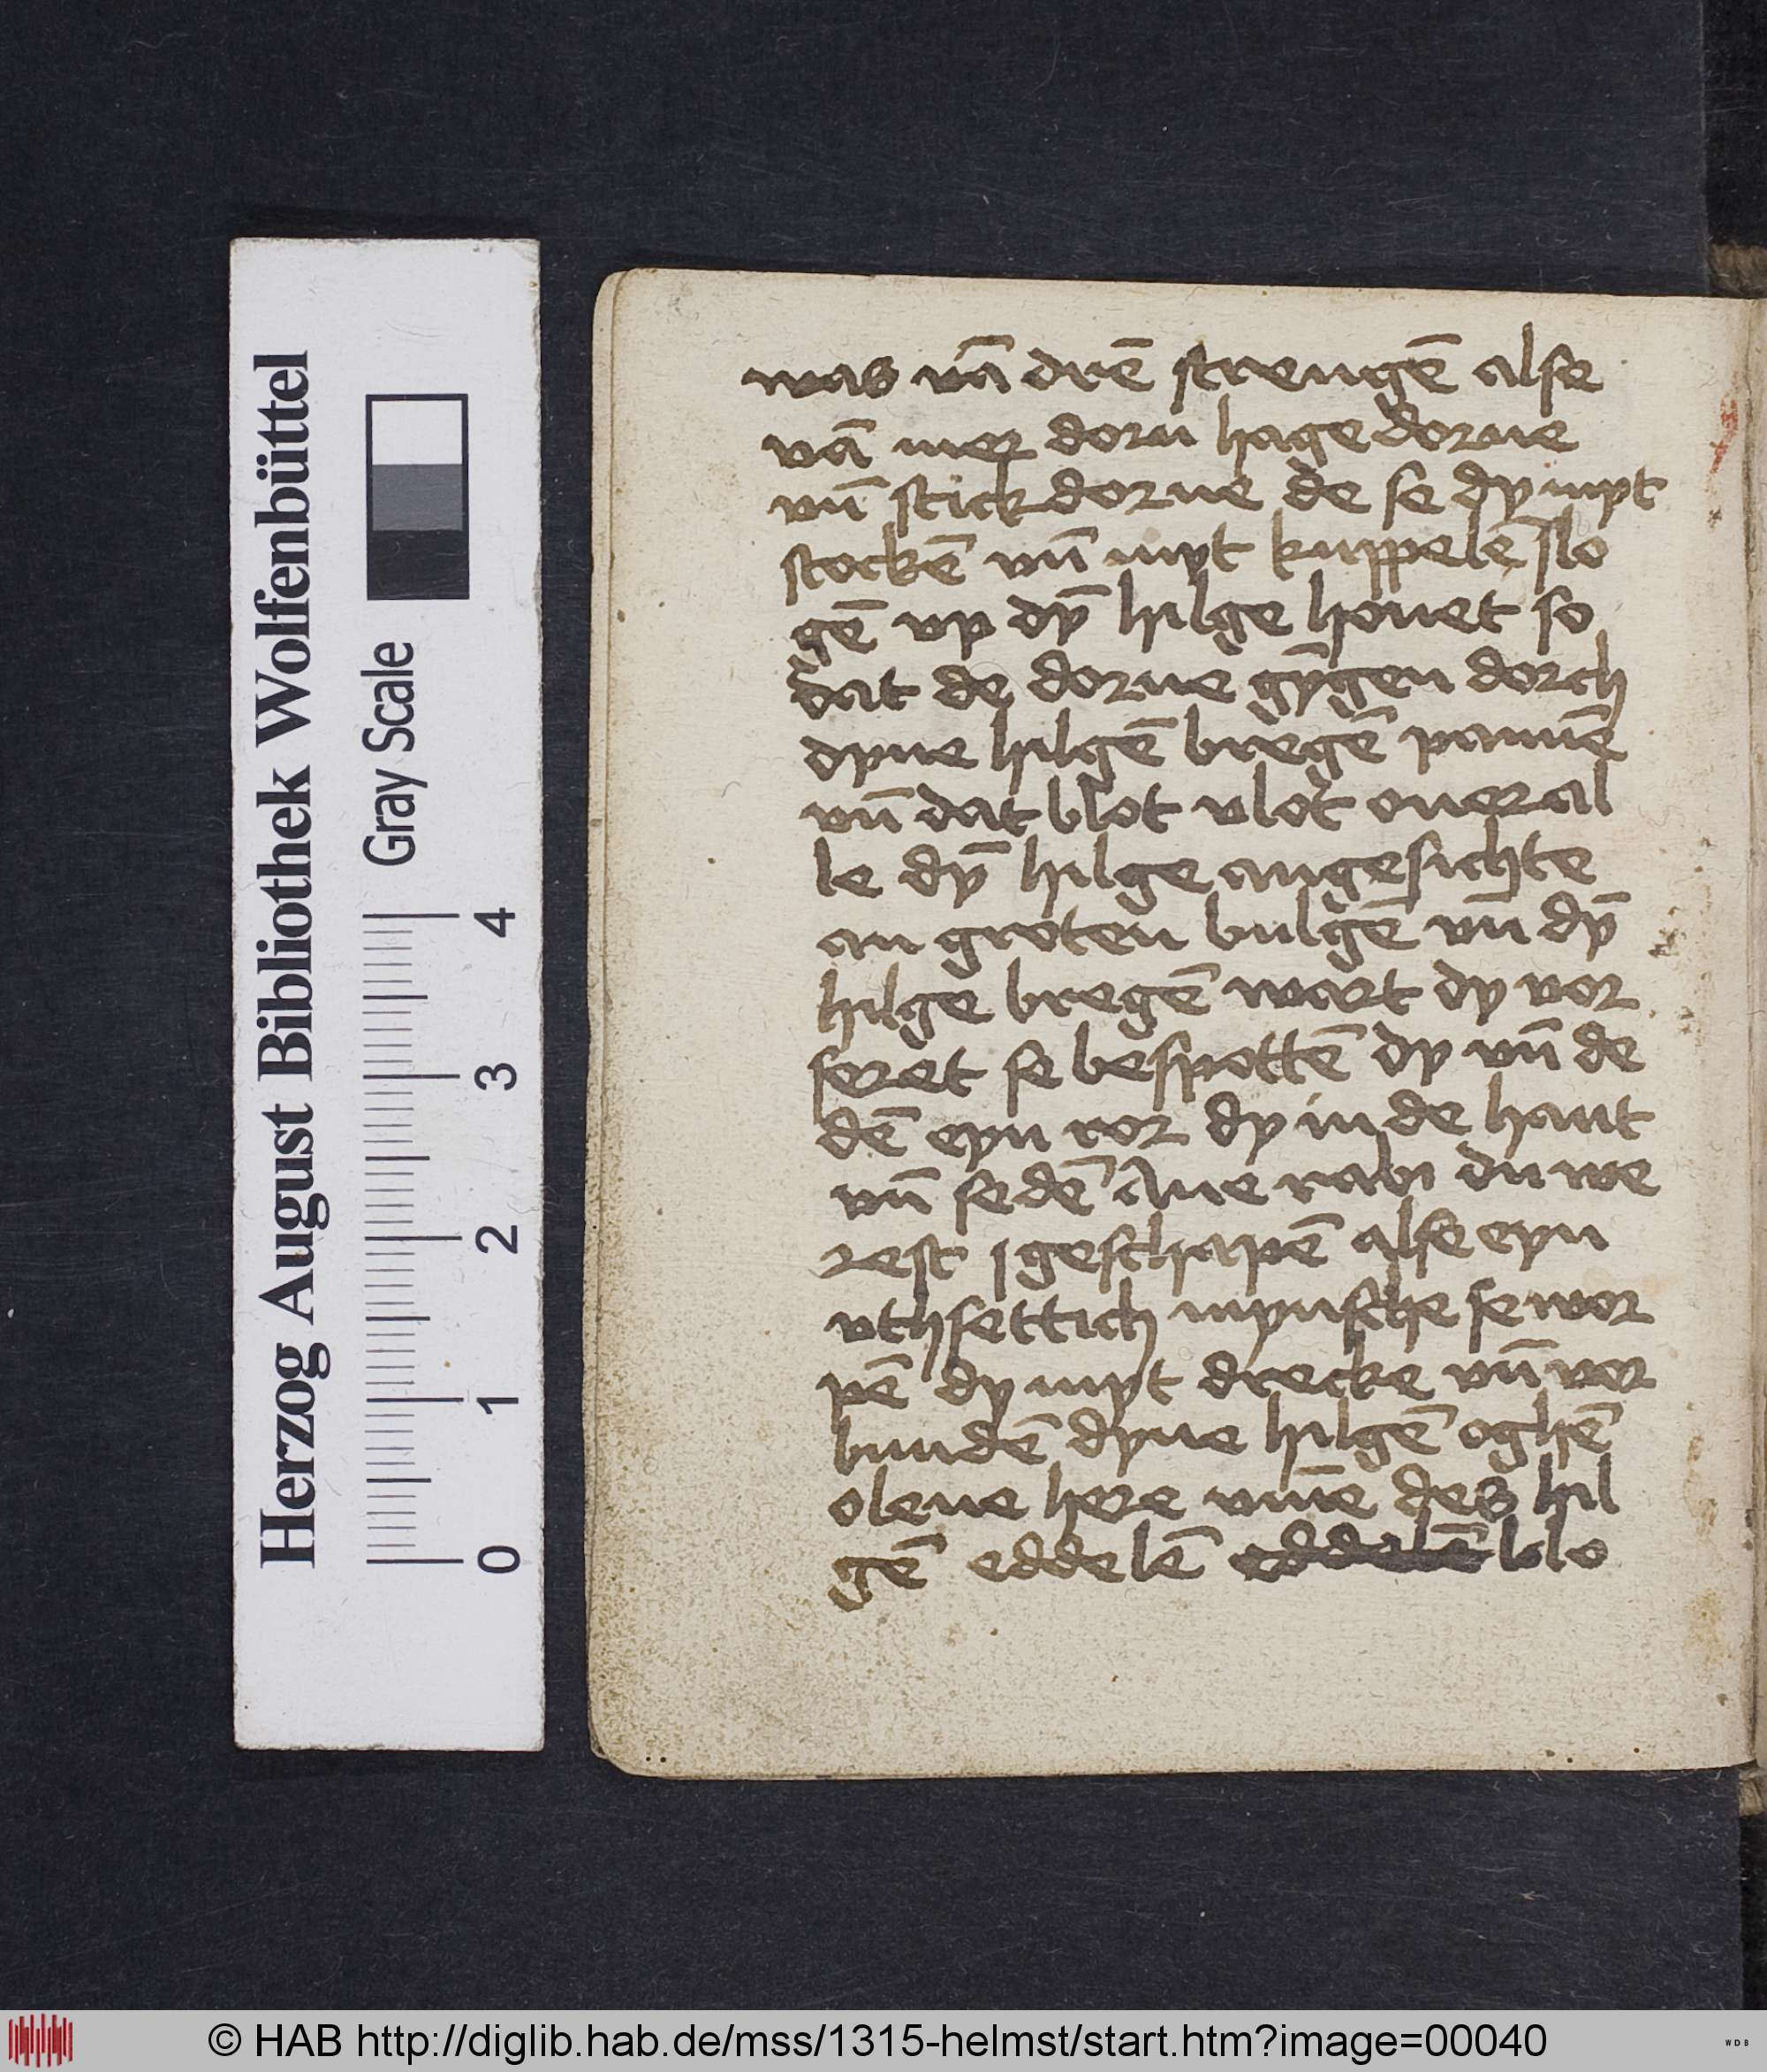 was vā drē strengē alse
vā mer dorn hagedorne
vn̄ stickdorne de se dy myt
stockē vn̄ myt kuppelē slo
gē vp dȳ hilge houet so
dat de dorne gȳgen dorch
dyne hilgē bregē pannē
vn̄ dat blot vlot oueral
le dȳ hilge angesichte
an groten bulgē vn̄ dȳ
hilge bregē wart dy vor
seret se bespottē dy vn̄ de
dē eyn ror dy in de hant
vn̄ sedē Aue rabi du we
rest geschapē alse eyn
vthsettich mynsche se wor
pē dy myt drecke vn̄ vor
bundē dyne hilgē oghē
O leue here vm̄e des hil
gē eddelē eddelē blo
Herzog August Bibliothek Wolfenbüttel
Gray Scale
0 1 2 3 4
© HAB http://diglib.hab.de/mss/1315-helmst/start.htm?image=00040
WDB